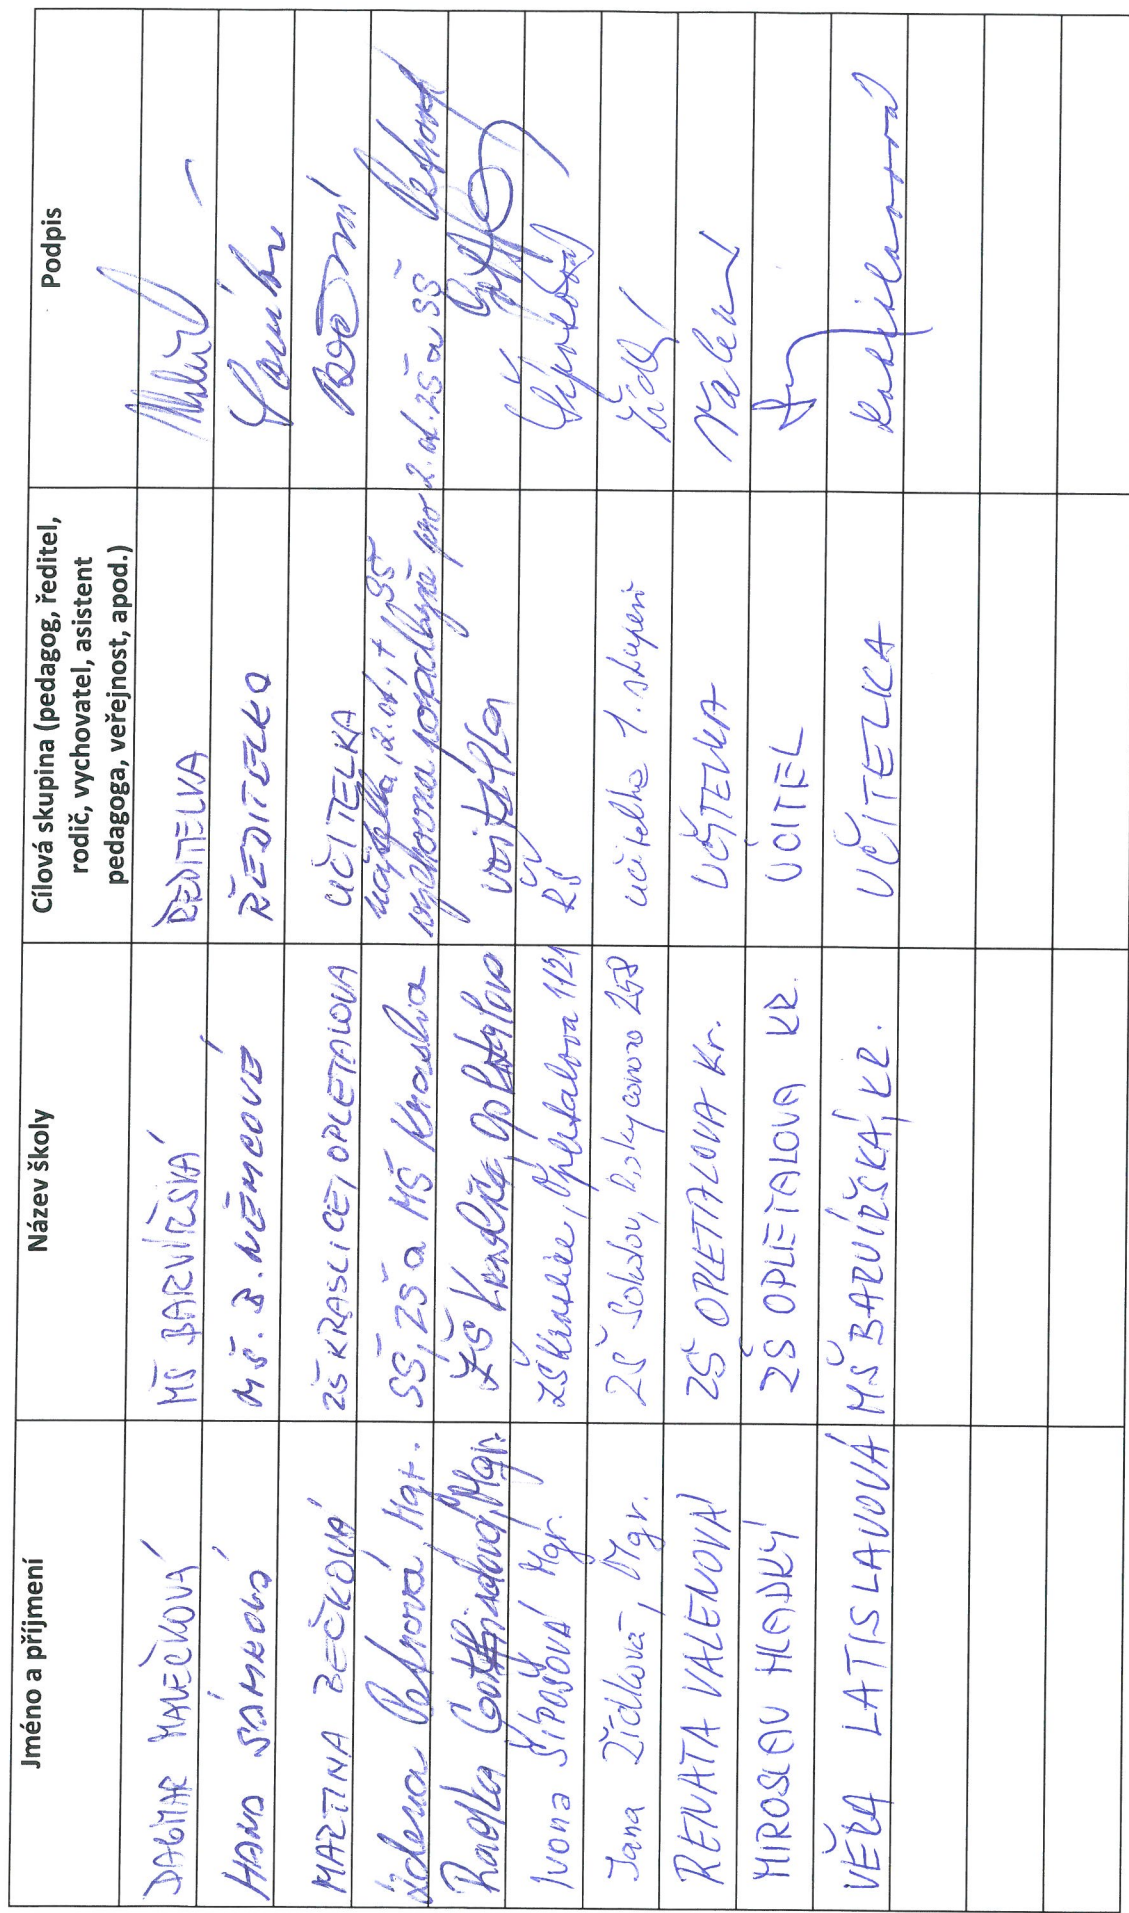 Jméno a příjmení Název školy Cílová skupina (pedagog, ředitel, Podpis
rodič, vychovatel, asistent
pedagoga, veřejnost, apod.)
DAGMAR MALEČKOVÁ MŠ BARVÍŘSKÁ ŘEDITELKA
HANA SÁMKOVÁ MŠ. B. NĚMCOVÉ ŘEDITELKA
MARTINA BEČKOVÁ ZŠ KRASLICE, OPLETALOVA UČITELKA
Zdena Petrová, Mgr. SŠ, ZŠ a MŠ Kraslice učitelka, 2. st. + SŠ
výchovná poradkyně pro 2. st. ZŠ a SŠ Petrová
Radka Gottfriedová, Mgr. ZŠ Kraslice, Opletalova
Ivona Šípošová Mgr. ZŠ Kraslice, Opletalova 1121 ŘŠ Šípošová
Jana Žídková, Mgr. ZŠ Sokolov, Rokycanova 258 učitelka 1. stupeň
RENATA VALENOVÁ ZŠ OPLETALOVA Kr. UČITELKA
MIROSLAV HLADKÝ ZŠ OPLETALOVA KR. UČITEL
VĚRA LATISLAVOVÁ MŠ BARVÍŘSKÁ, KR. UČITELKA